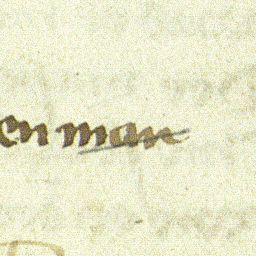 en man